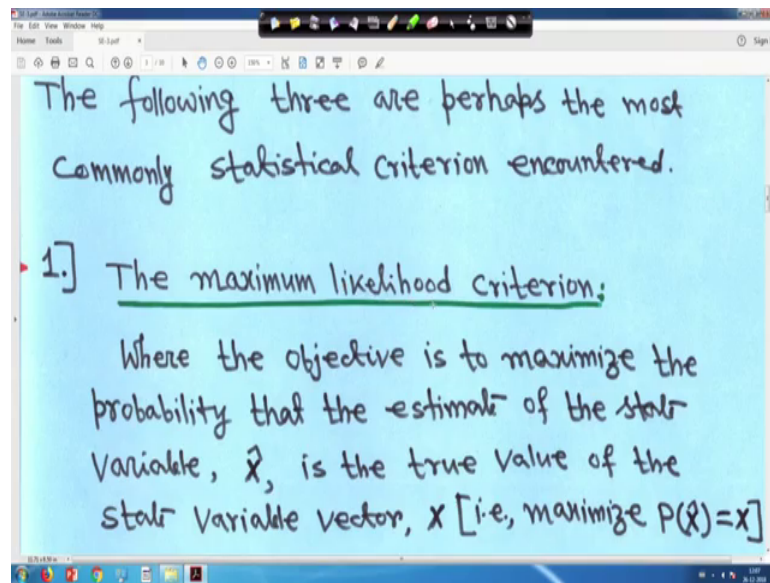 SE-3.pdf - Adobe Acrobat Reader DC
File Edit View Window Help
Home Tools SE-3.pdf × Sign
The following three are perhaps the most
commonly statistical criterion encountered.
1.] The maximum likelihood criterion:
Where the objective is to maximize the
probability that the estimate of the state
variable, x̂, is the true value of the
state variable vector, x [i.e., maximize P(x̂)=x]